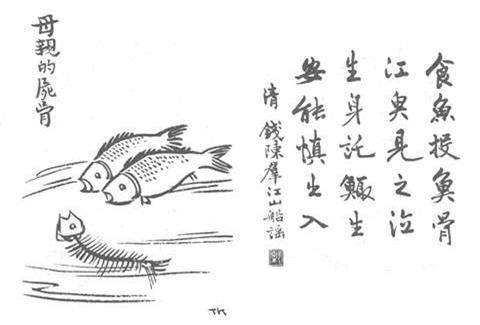 食魚投魚骨
江魚見之泣
生身託鯫生
安能慎出入
清 錢陳羣江山船謠
母親的屍骨
TK